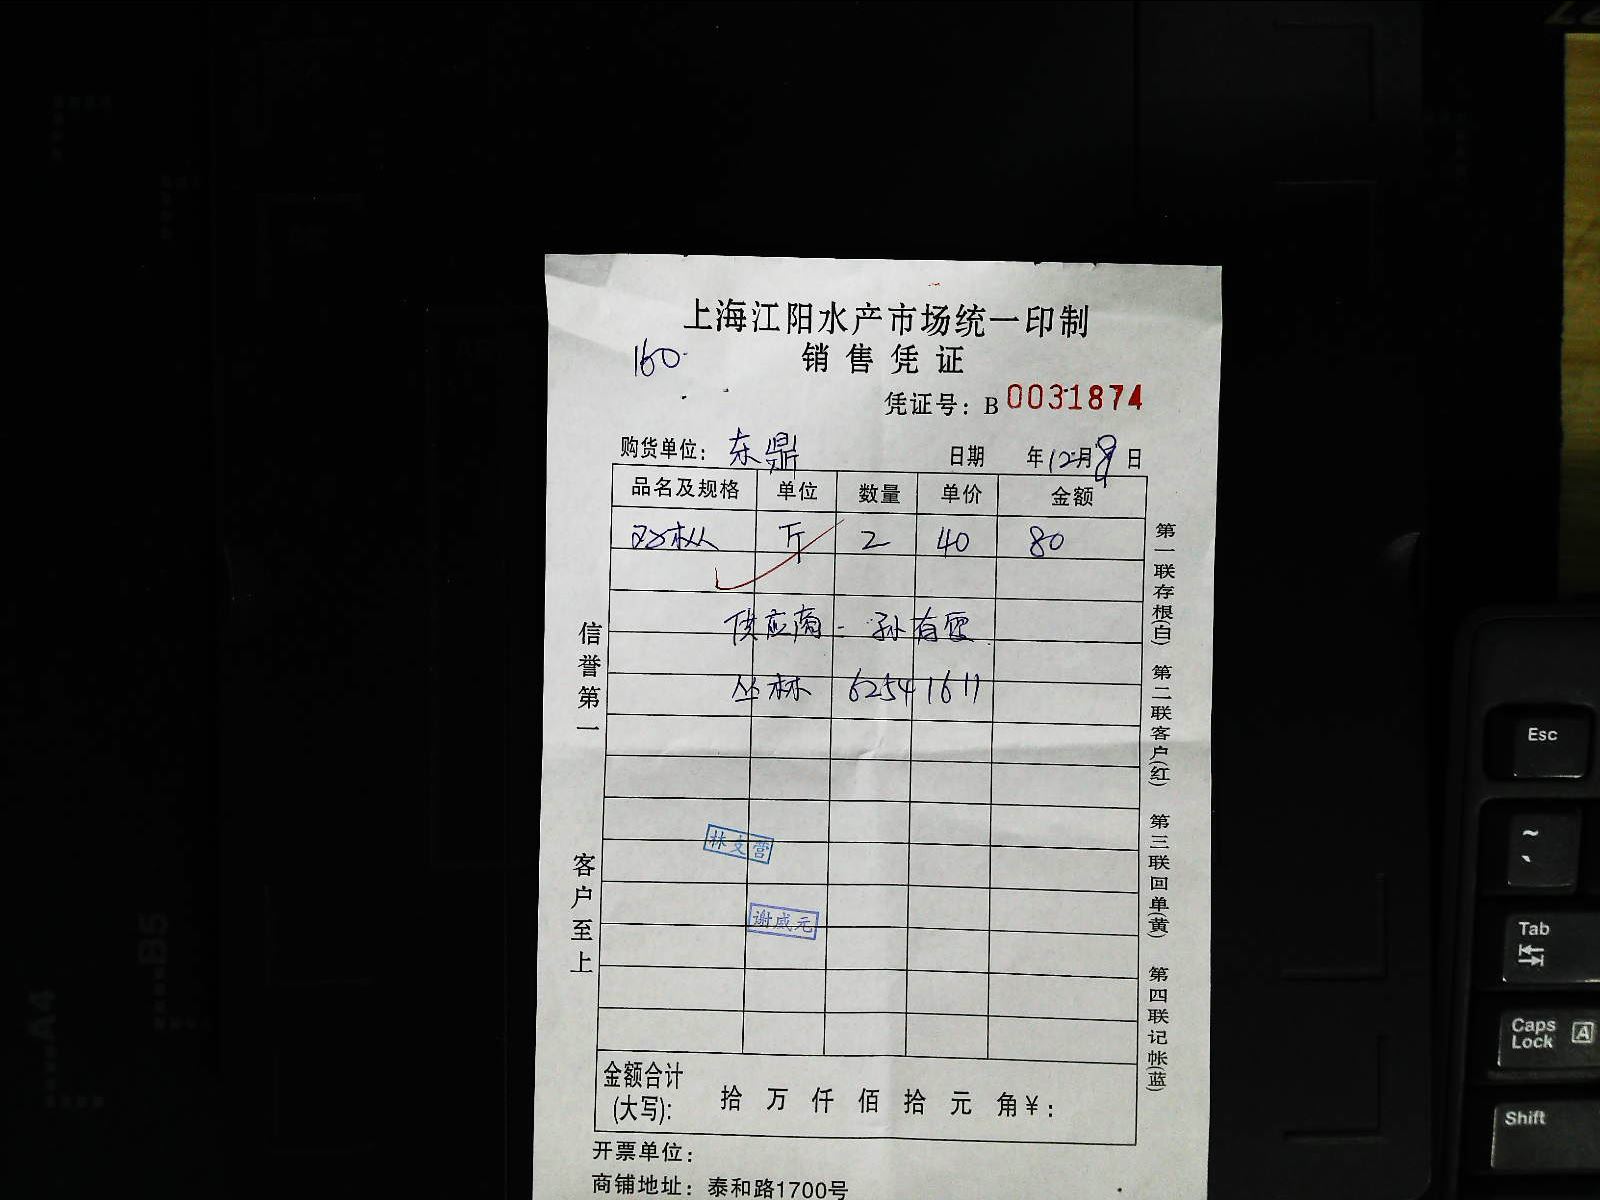 上海江阳水产市场统一印制
160
销售凭证
凭证号：B 0031874
购货单位：东鼎 日期 年12月9日
品名及规格 单位 数量 单价 金额
斤 2 40 80
供应商 - 孙有
丛林 62541611
林文营
谢成元
金额合计
(大写): 拾 万 仟 佰 拾 元 角￥:
开票单位：
商铺地址：泰和路1700号
信誉第一
客户至上
第一联存根(白) 第二联客户(红) 第三联回单(黄) 第四联记帐(蓝)
Esc
~
、
Tab
Caps
Lock
A
Shift
A4
B5